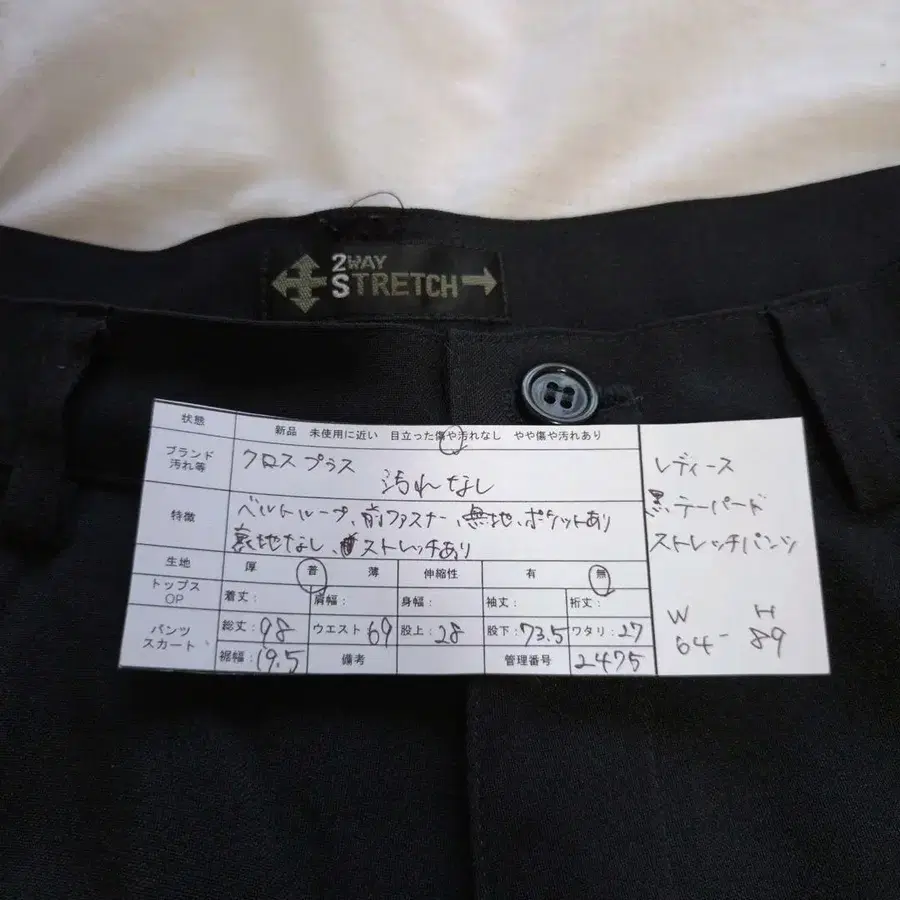 2WAY
STRETCH
状態
新品 未使用に近い 目立った傷や汚れなし やや傷や汚れあり
ブランド
汚れ等
クロスプラス
汚れなし
特徴
ベルトループ、前ファスナー、無地、ポケットあり
裏地なし、ストレッチあり
生地 厚 普 薄 伸縮性 有 無
トップス
OP
着丈: 肩幅: 身幅: 袖丈: 裄丈:
パンツ
スカート
総丈:98 ウエスト69 股上:28 股下:73.5 ワタリ:27
裾幅:19.5 備考 管理番号 2475
レディース
黒、テーパード
ストレッチパンツ
W H
64- 89